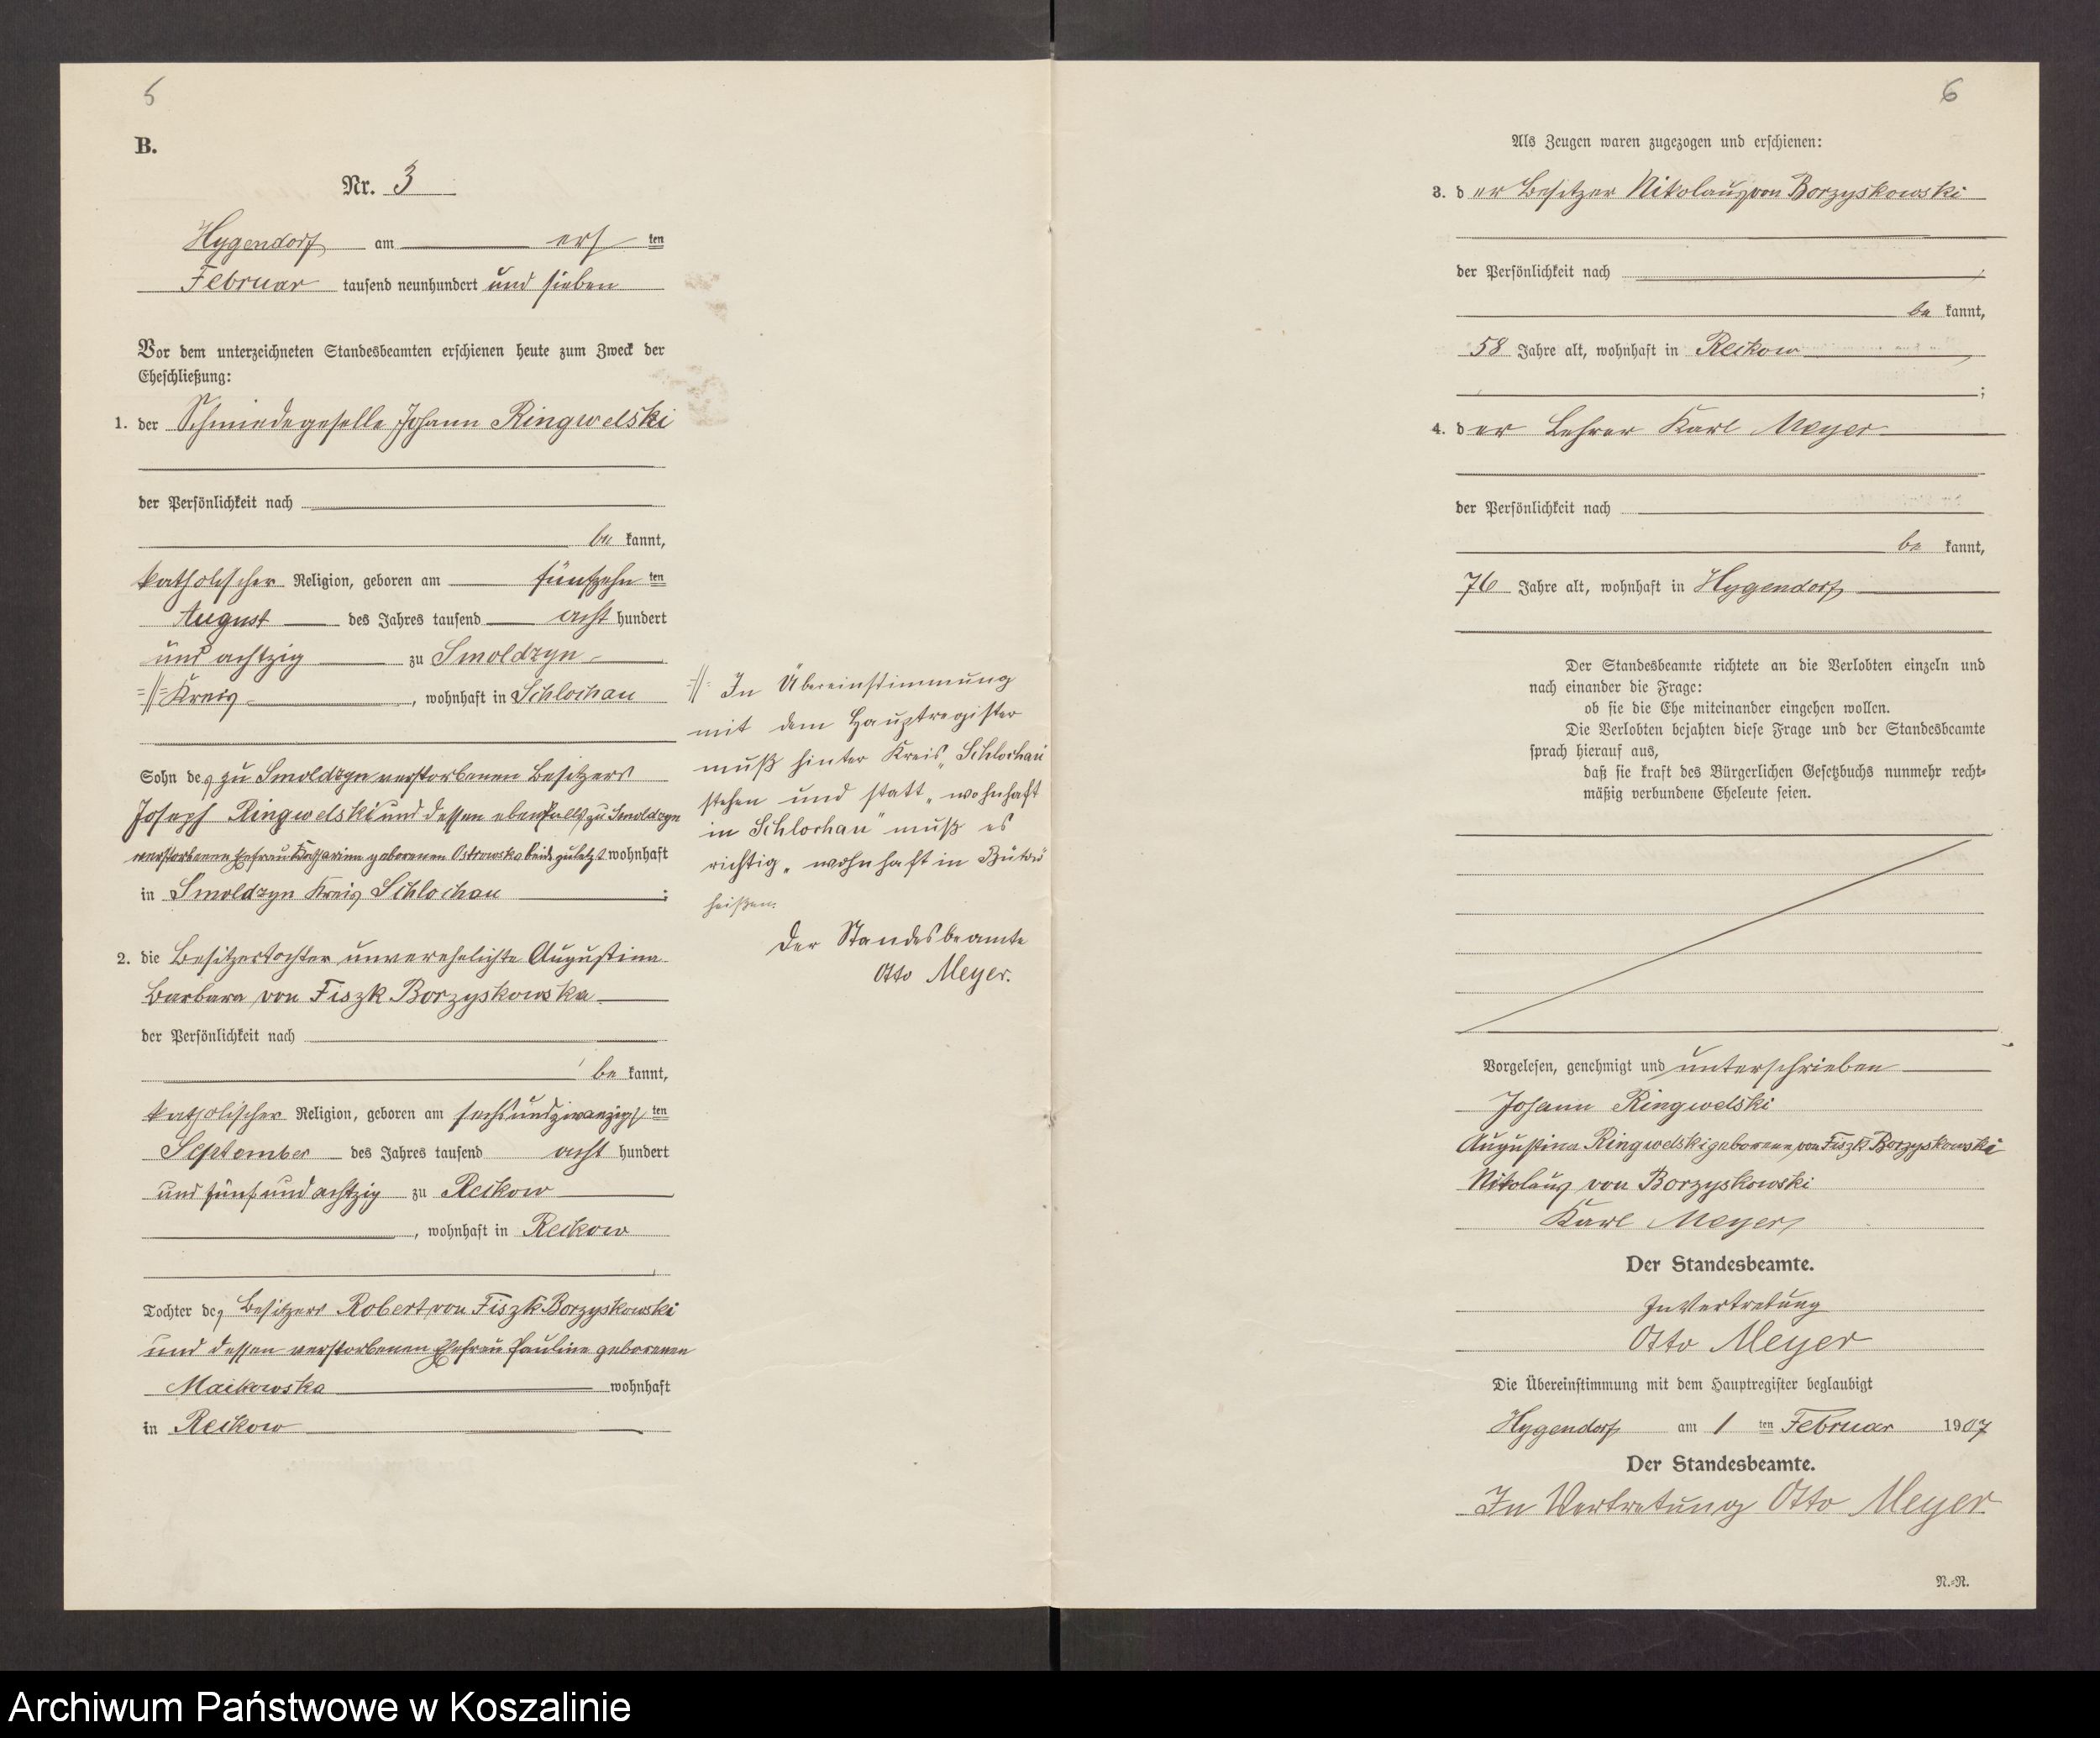 5
B.
Nr. 3
Hygendorf am ersten
Februar tausend neunhundert und sieben
Vor dem unterzeichneten Standesbeamten erschienen heute zum Zweck der
Eheschließung:
1. der Schmiedegeselle Johann Ringwelski
der Persönlichkeit nach
be kannt,
katholischer Religion, geboren am fünfzehn ten
August des Jahres tausend acht hundert
und achtzig zu Smoldzyn
=//= Kreis , wohnhaft in Schlochau
Sohn des zu Smoldzyn verstorbenen Besitzers
Joseph Ringwelski und dessen ebenfalls zu Smoldzyn
verstorbenen Ehefrau Katharina geborenen Ostrowska beide zuletzt wohnhaft
in Smoldzyn Kreis Schlochau ;
2. die Besitzertochter unverehelichte Augustina
Barbara von Fiszk Borzyskowska
der Persönlichkeit nach
be kannt,
katholischer Religion, geboren am sechsundzwanzigs ten
September des Jahres tausend acht hundert
und fünfundachtzig zu Reckow
, wohnhaft in Reckow
Tochter des Besitzers Robert von Fiszk Borzyskowski
und dessen verstorbenen Ehefrau Pauline geborenen
Maikowska wohnhaft
in Reckow
=//= In Übereinstimmung
mit dem Hauptregister
muß hinter Kreis „Schlochau"
stehen und statt „wohnhaft
in Schlochau" muß es
richtig „wohnhaft in Bütow"
heißen.
Der Standesbeamte
Otto Meyer.
6
Als Zeugen waren zugezogen und erschienen:
3. der Besitzer Nikolaus von Borzyskowski
der Persönlichkeit nach
be kannt,
58 Jahre alt, wohnhaft in Reckow
;
4. der Lehrer Karl Meyer
der Persönlichkeit nach
be kannt,
76 Jahre alt, wohnhaft in Hygendorf
Der Standesbeamte richtete an die Verlobten einzeln und
nach einander die Frage:
ob sie die Ehe miteinander eingehen wollen.
Die Verlobten bejahten diese Frage und der Standesbeamte
sprach hierauf aus,
daß sie kraft des Bürgerlichen Gesetzbuchs nunmehr recht-
mäßig verbundene Eheleute seien.
Vorgelesen, genehmigt und unterschrieben
Johann Ringwelski
Augustina Ringwelski geborene von Fiszk Borzyskowski
Nikolaus von Borzyskowski
Karl Meyer
Der Standesbeamte.
In Vertretung
Otto Meyer
Die Übereinstimmung mit dem Hauptregister beglaubigt
Hygendorf am 1 ten Februar 1907
Der Standesbeamte.
In Vertretung Otto Meyer
N.-R.
Archiwum Państwowe w Koszalinie